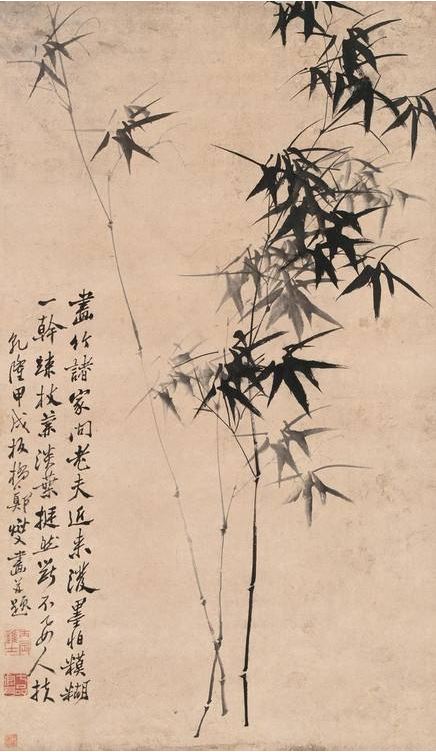 畫竹諸家问老夫近来潑墨怕糢糊
一幹踈枝兼淡葉挺然断不要人扶
乾隆甲戌板橋鄭燮畫並題